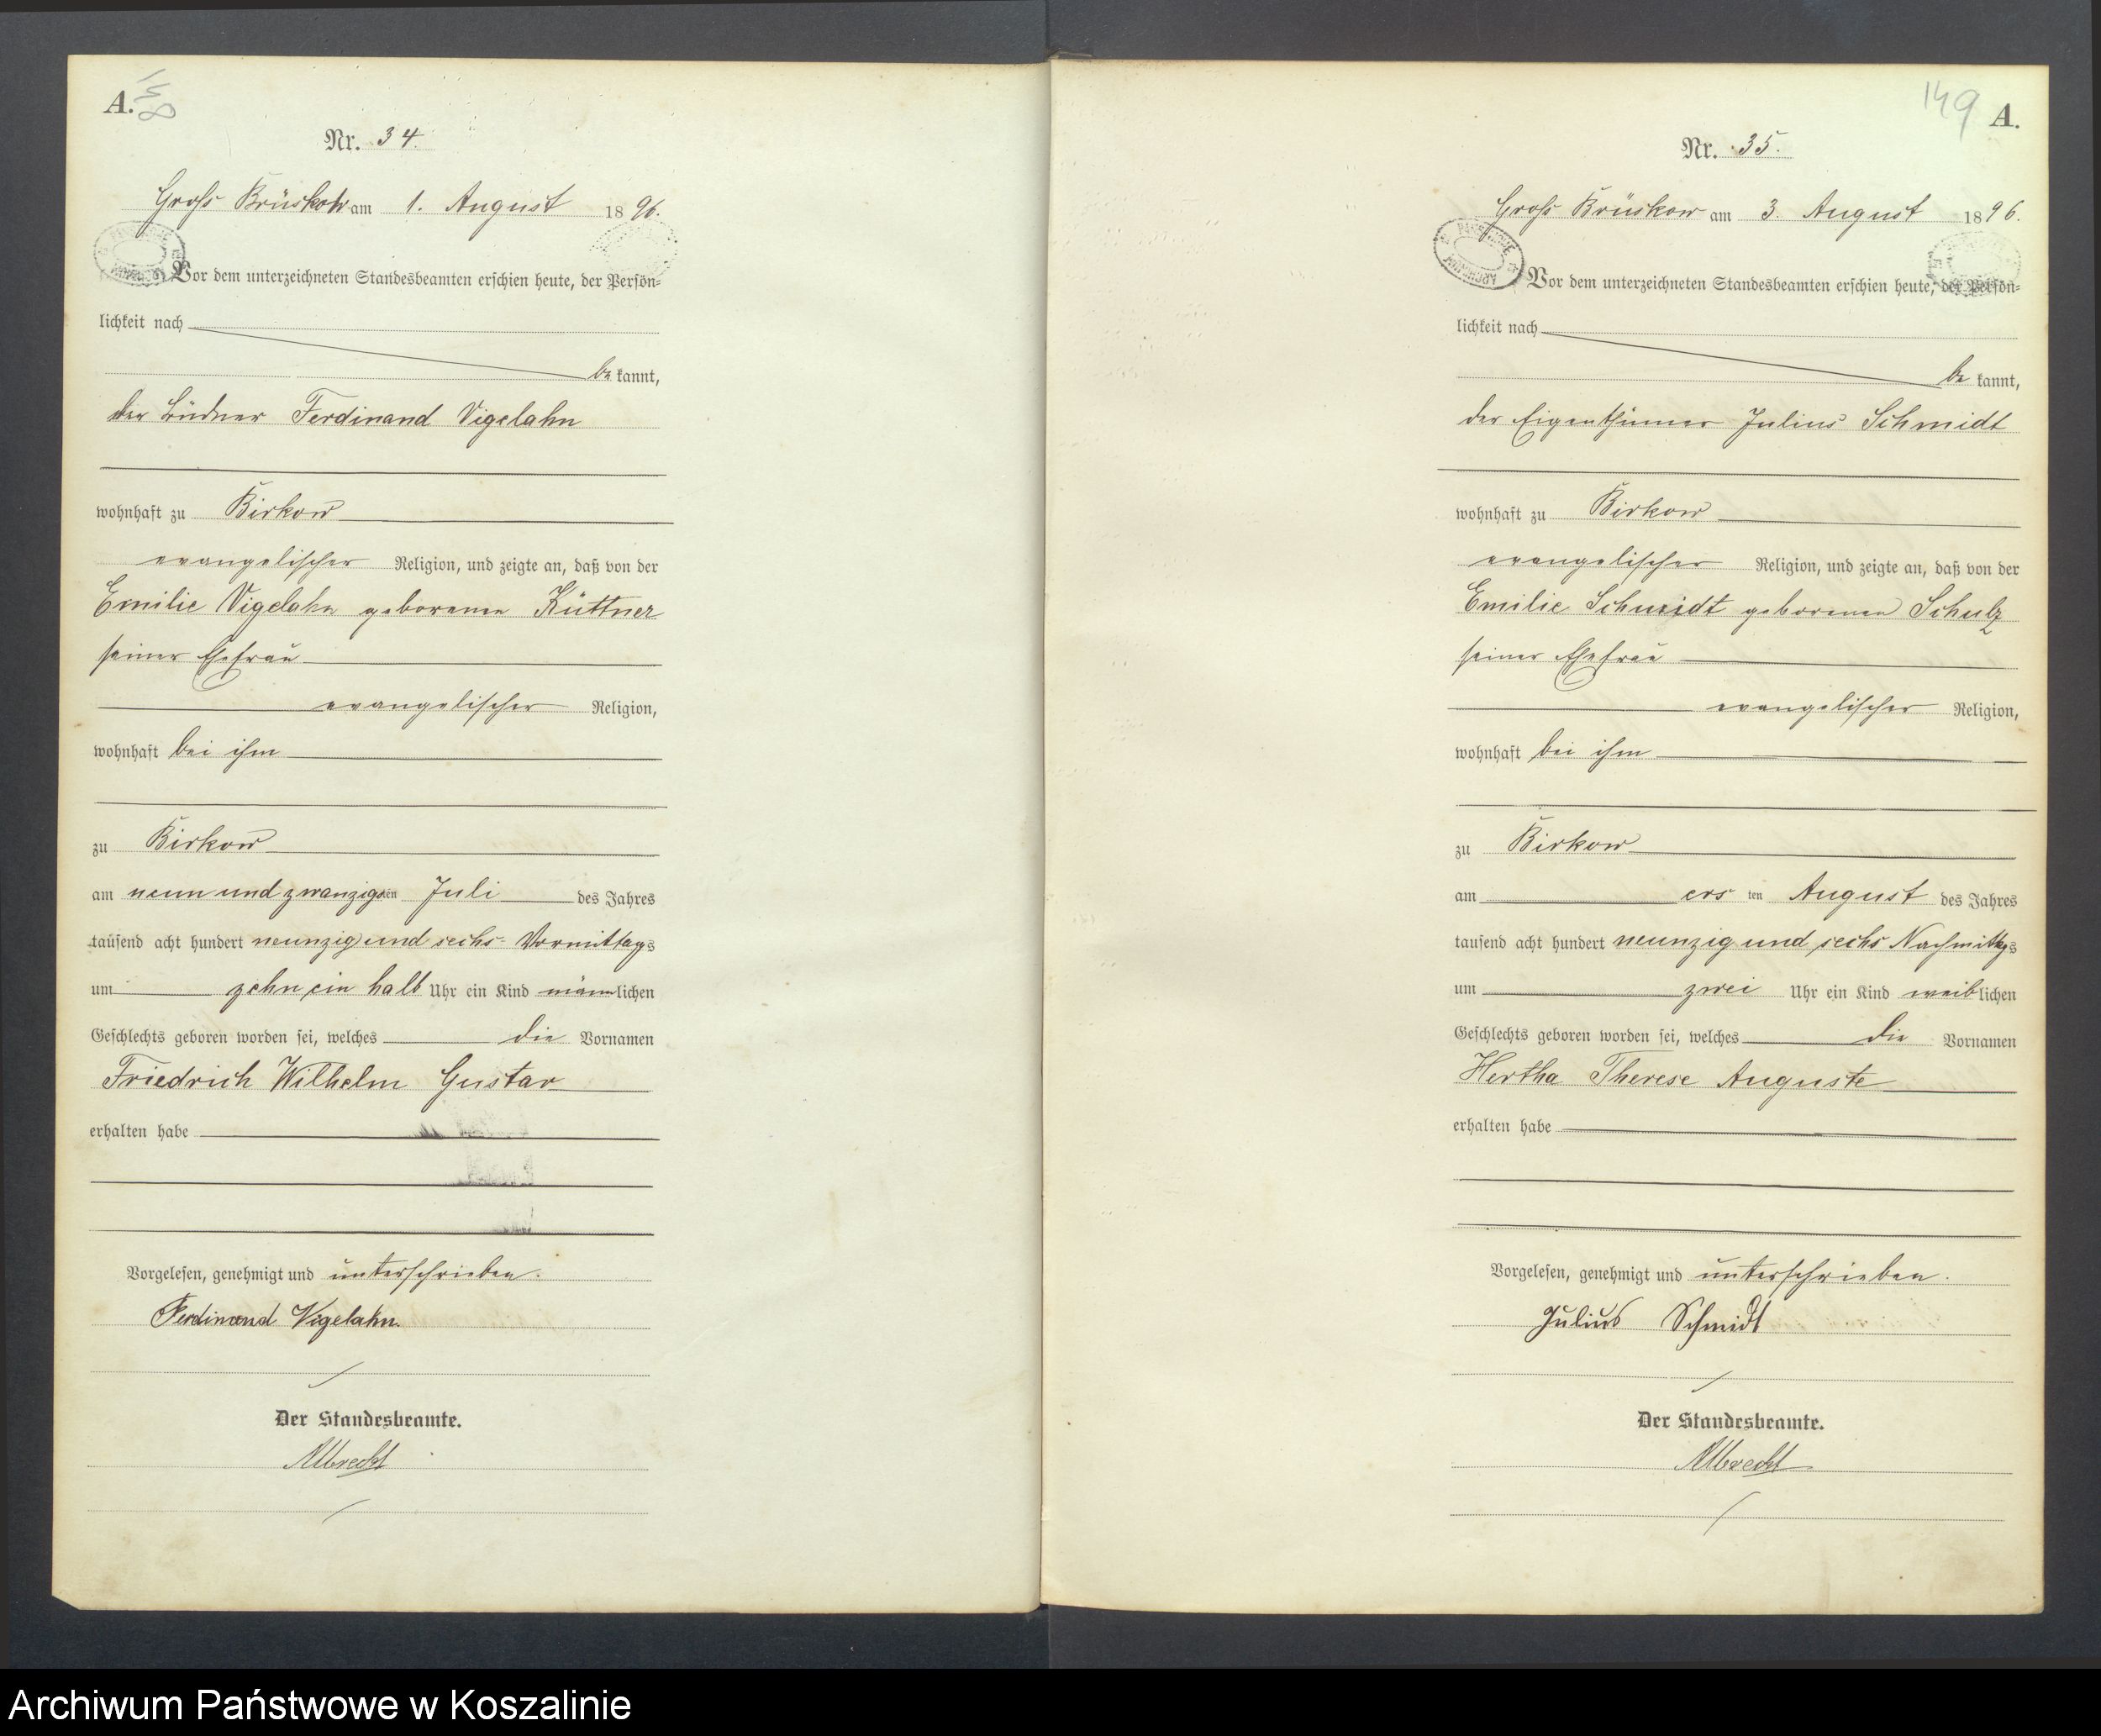 A.
Nr. 34.
Groß Brüskow am 1. August 1896.
Vor dem unterzeichneten Standesbeamten erschien heute, der Persön-
lichkeit nach
be kannt,
der Büdner Ferdinand Vigelahn
wohnhaft zu Birkow
evangelischer Religion, und zeigte an, daß von der
Emilie Vigelahn geborenen Küttner
seiner Ehefrau
evangelischer Religion,
wohnhaft bei ihm
zu Birkow
am neun und zwanzigsten Juli des Jahres
tausend acht hundert neunzig und sechs Vormittags
um zehn ein halb Uhr ein Kind männlichen
Geschlechts geboren worden sei, welches die Vornamen
Friedrich Wilhelm Gustav
erhalten habe
Vorgelesen, genehmigt und unterschrieben.
Ferdinand Vigelahn.
Der Standesbeamte.
Albrecht
149 A.
Nr. 35.
Groß Brüskow am 3. August 1896.
Vor dem unterzeichneten Standesbeamten erschien heute, der Persön-
lichkeit nach
be kannt,
der Eigenthümer Julius Schmidt
wohnhaft zu Birkow
evangelischer Religion, und zeigte an, daß von der
Emilie Schmidt geborenen Schulz
seiner Ehefrau
evangelischer Religion,
wohnhaft bei ihm
zu Birkow
am ersten August des Jahres
tausend acht hundert neunzig und sechs Nachmittags
um zwei Uhr ein Kind weiblichen
Geschlechts geboren worden sei, welches die Vornamen
Hertha Therese Auguste
erhalten habe
Vorgelesen, genehmigt und unterschrieben.
Julius Schmidt
Der Standesbeamte.
Albrecht
Archiwum Państwowe w Koszalinie